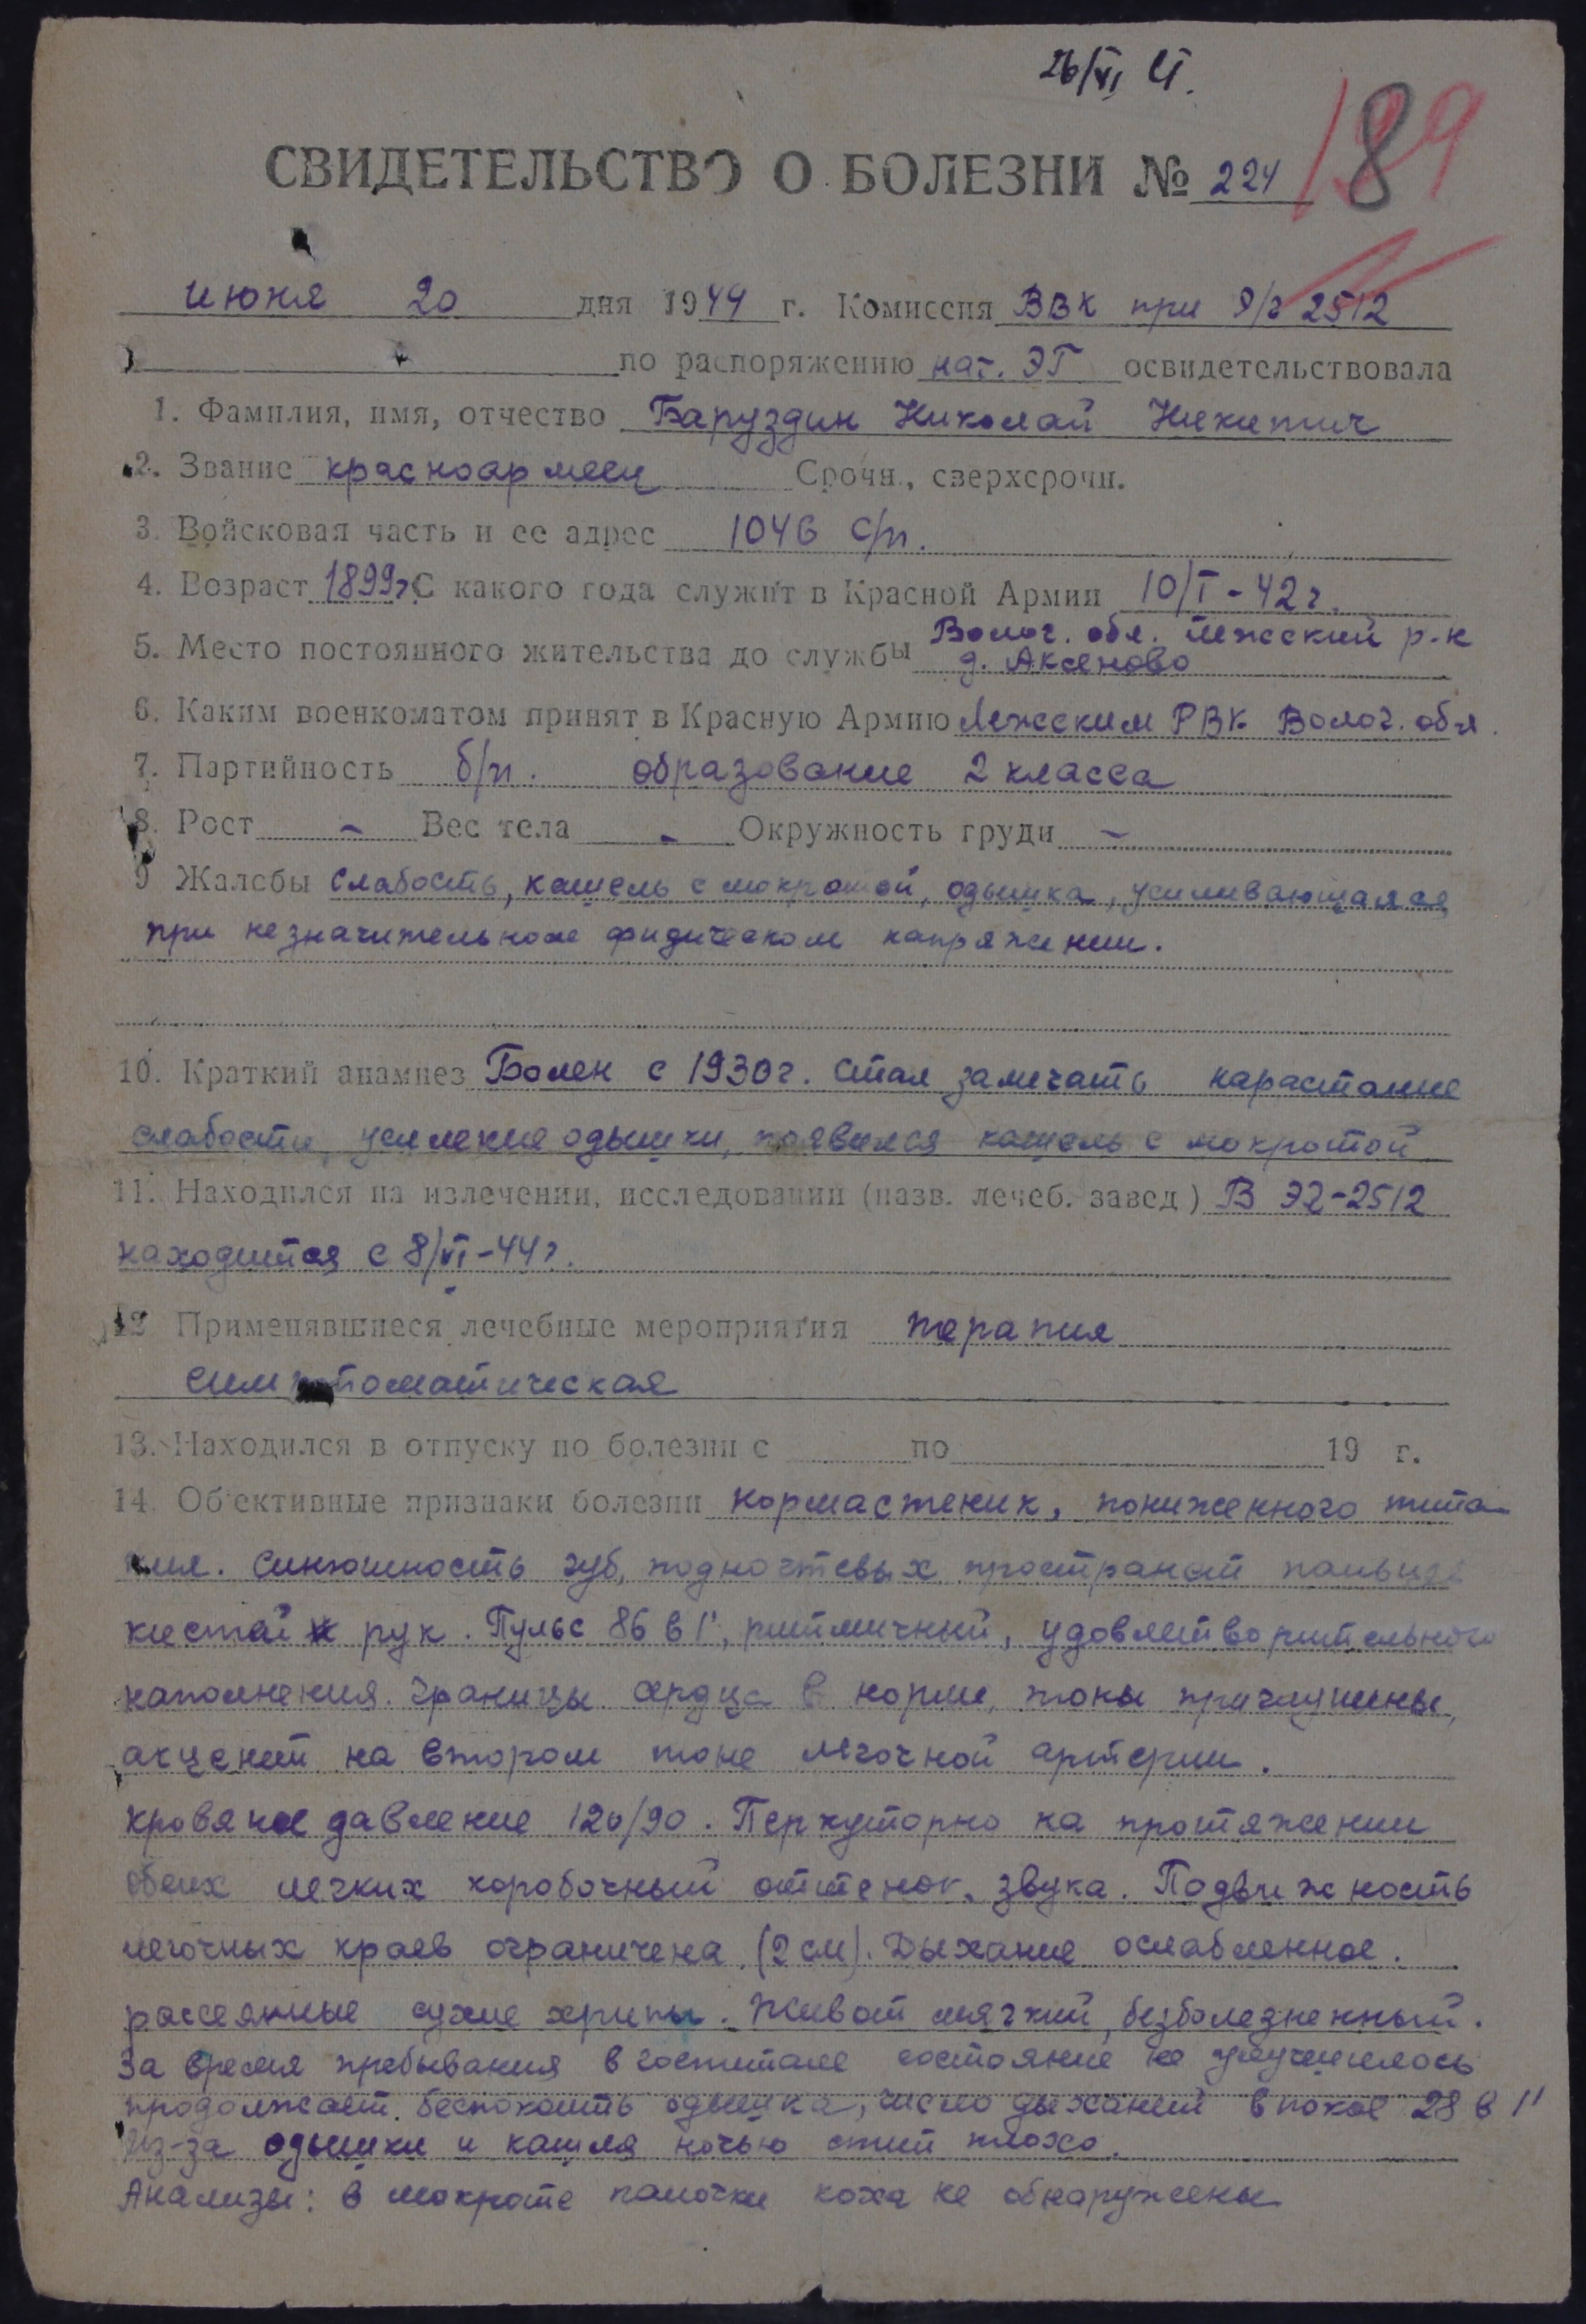 26/VI
189
СВИДЕТЕЛЬСТВО О БОЛЕЗНИ № 224
июня 20 дня 1944 г. Комиссия ВВК при Э/г 2512
по распоряжению нач. ЭГ освидетельствовала
1. Фамилия, имя, отчество Баруздин Николай Никитич
2. Звание красноармеец Срочн., сверхсрочн.
3. Войсковая часть и ее адрес 1046 с/п.
4. Возраст 1899г С какого года служит в Красной Армии 10/I-42г.
5. Место постоянного жительства до службы Волог. обл. Лежский р-н
д. Аксеново
6. Каким военкоматом принят в Красную Армию Лежским РВК Волог. обл.
7. Партийность б/п. образование 2 класса
8. Рост - Вес тела - Окружность груди -
9 Жалобы слабость, кашель с мокротой, одышка, усиливающаяся
при незначительном физическом напряжении.
10. Краткий анамнез Болен с 1930г. Стал замечать нарастание
слабости, усиление одышки, появился кашель с мокротой
11. Находился на излечении, исследовании (назв. лечеб. завед) В ЭГ-2512
находится с 8/VI-44г.
12 Применявшиеся лечебные мероприятия терапия
симптоматическая
13. Находился в отпуску по болезни с по 19 г.
14. Об'ективные признаки болезни нормастеник, пониженного пита-
ния. Синюшность губ, подногтевых пространств пальцев
кистей рук. Пульс 86 в 1', ритмичный, удовлетворительного
наполнения. Границы сердца в норме, тоны приглушены,
акцент на втором тоне легочной артерии.
кровяное давление 120/90. Перкуторно на протяжении
обеих легких коробочный оттенок звука. Подвижность
легочных краев ограничена (2 см). Дыхание ослабленное.
рассеянные сухие хрипы. Живот мягкий, безболезненный.
За время пребывания в госпитале состояние не улучшилось
продолжает беспокоить одышка, число дыханий в покое 28 в 1'
Из-за одышки и кашля ночью спит плохо.
Анализы: в мокроте палочки коха не обнаружены